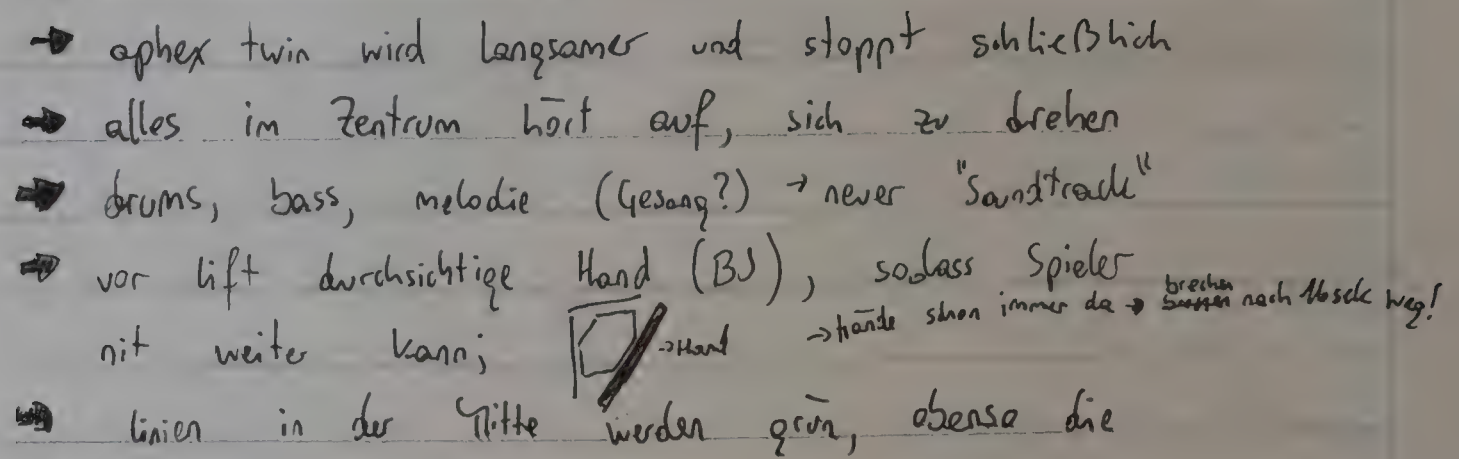 → aphex twin wird langsamer und stoppt schließlich
→ alles im Zentrum hört auf, sich zu drehen
→ drums, bass, melodie (Gesang?) → neuer "Soundtrack"
→ vor lift durchsichtige Hand (BJ), sodass Spieler
nit weiter kann; → Hand → hände schon immer da → brechen nach weg!
→ linien in der Mitte werden grün, ebenso die